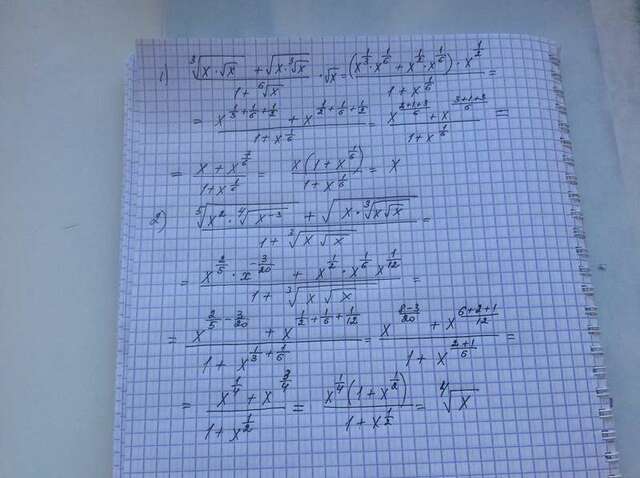 1) \frac{\sqrt[3]{x \cdot \sqrt{x}} + \sqrt{x \cdot \sqrt[3]{x}}}{1 + \sqrt[6]{x}} \cdot \sqrt{x} = \frac{(x^{\frac{1}{3}} \cdot x^{\frac{1}{6}} + x^{\frac{1}{2}} \cdot x^{\frac{1}{6}}) \cdot x^{\frac{1}{2}}}{1 + x^{\frac{1}{6}}} =
= \frac{x^{\frac{1}{3} + \frac{1}{6} + \frac{1}{2}} + x^{\frac{1}{2} + \frac{1}{6} + \frac{1}{2}}}{1 + x^{\frac{1}{6}}} = \frac{x^{\frac{2+1+3}{6}} + x^{\frac{3+1+3}{6}}}{1 + x^{\frac{1}{6}}} =
= \frac{x + x^{\frac{7}{6}}}{1 + x^{\frac{1}{6}}} = \frac{x(1 + x^{\frac{1}{6}})}{1 + x^{\frac{1}{6}}} = x
2) \frac{\sqrt[5]{x^2 \cdot \sqrt[4]{x^{-3}}} + \sqrt{x \cdot \sqrt[3]{x\sqrt{x}}}}{1 + \sqrt[3]{x\sqrt{x}}} =
= \frac{x^{\frac{2}{5}} \cdot x^{-\frac{3}{20}} + x^{\frac{1}{2}} \cdot x^{\frac{1}{6}} x^{\frac{1}{12}}}{1 + \sqrt[3]{x\sqrt{x}}} =
= \frac{x^{\frac{2}{5} - \frac{3}{20}} + x^{\frac{1}{2} + \frac{1}{6} + \frac{1}{12}}}{1 + x^{\frac{1}{3} + \frac{1}{6}}} = \frac{x^{\frac{8-3}{20}} + x^{\frac{6+2+1}{12}}}{1 + x^{\frac{2+1}{6}}} =
= \frac{x^{\frac{1}{4}} + x^{\frac{3}{4}}}{1 + x^{\frac{1}{2}}} = \frac{x^{\frac{1}{4}}(1 + x^{\frac{1}{2}})}{1 + x^{\frac{1}{2}}} = \sqrt[4]{x}